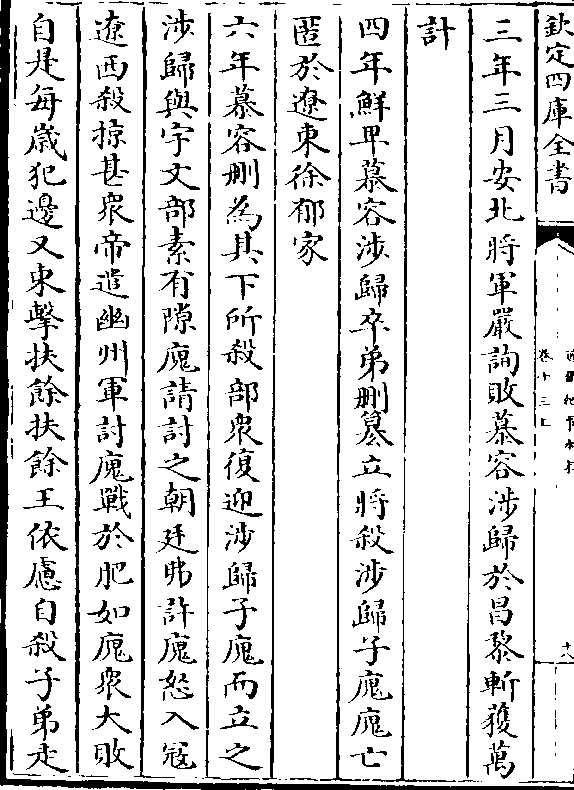 欽定四庫全書
三年三月安北將軍嚴詢敗慕容涉歸於昌黎斬獲萬
計
四年鮮卑慕容涉歸卒弟刪簒立將殺涉歸子廆廆亡
匿於遼東徐郁家
六年慕容刪為其下所殺部衆復迎涉歸子廆而立之
涉歸與宇文部素有隙廆請討之朝廷弗許廆怒入冦
遼西殺掠甚衆帝遣幽州軍討廆戰於肥如廆衆大敗
自是每歲犯邊又東擊扶餘扶餘王依慮自殺子弟走